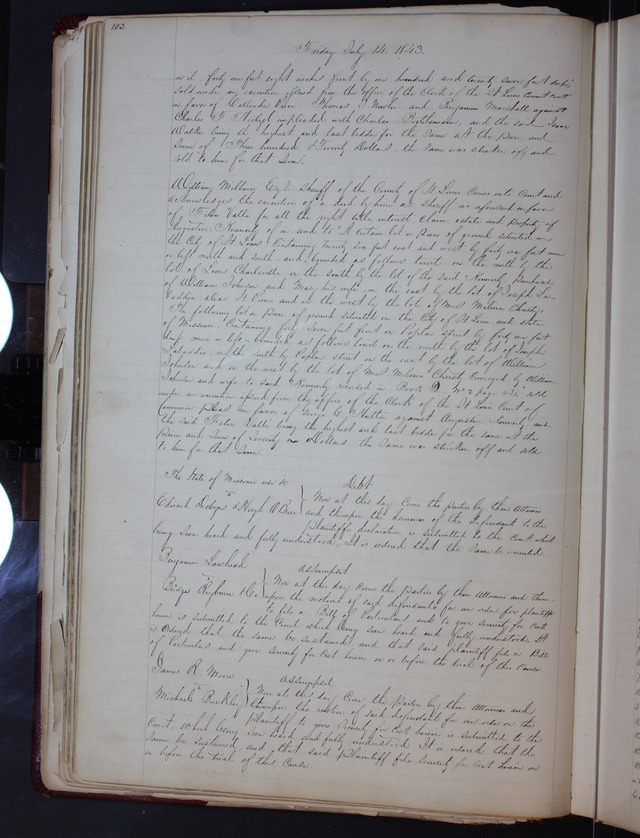 103
Friday July 14. 1843.
forty one feet eight inches front by one hundred and twenty seven feet deep
sold under an execution issued from the office of the Clerk of the St Louis Circuit Court
in favor of and Benjamin Marshall against
Charles impleaded with Charles and the said Isaac
being the highest and last bidder for the same at the price and
sum of hundred & Twenty Dollars the same was stricken off and
sold to him for that Sum.
William Milburn Esqr Sheriff of the County of St Louis Comes into Court and
acknowledges the execution of a deed by him as Sheriff as aforesaid in favor
of Felix Valle for all the right title interest claim estate and property of
Augustin Kennerly of in and to A certain lot or piece of ground situated in
the City of St Louis Containing twenty six feet east and west by forty five feet more
or less north and south and bounded as follows towit on the north by the
lot of Louis Charleville on the south by the lot of the said Kennerly purchased
of William Johnson and Mary his wife on the east by the lot of Joseph
alias St Pierre and on the west by the lot of Mrs Melina Christy.
The following lot or piece of ground situated in the City of St Louis and state
of Missouri Containing forty seven feet front on Poplar street by forty one feet
deep more or less bounded as follows towit on the north by the lot of Joseph
on the south by Poplar street on the east by the lot of William
Johnson and on the west by the lot of Mrs Melina Christy Conveyed by William
Johnson and wife to said Kennerly recorded in Book No 2 page sold
under an execution issued from the office of the Clerk of the St Louis Court of
Common Pleas in favor of George C. against Augustin Kennerly and
the said Felix Valle being the highest and last bidder for the same at the
price and sum of Seventy Dollars the same was stricken off and sold
to him for that Sum.
The State of Missouri use Debt
vs Now at this day Come the parties by their Attornies
Edward Dobyns & Hugh O'Brien and thereupon the demurrer of the defendant to the
Plaintiffs declaration is submitted to the Court which
being seen heard and fully understood, It is ordered that the same be overruled
Benjamin Lawhead Assumpsit
vs Now at this day Come the parties by their Attornies and there
Riggs Rayburn & Co upon the motion of said defendants for an order for plaintiff
to file a Bill of Particulars and to give security for Costs
herein is submitted to the Court which being seen heard and fully understood It
is Ordered that the same be sustained, and that said plaintiff file a Bill
of Particulars and give security for Cost herein on or before the trial of this cause.
James R. Moore Assumpsit
vs Now at this day Come the parties by their Attornies and
Michael Buckley thereupon the motion of said defendant for an order on the
Plaintiff to give security for Cost herein is submitted to the
Court which being seen heard and fully understood It is ordered that the
same be sustained, and that said plaintiff file security for Cost herein on
or before the trial of this Cause.